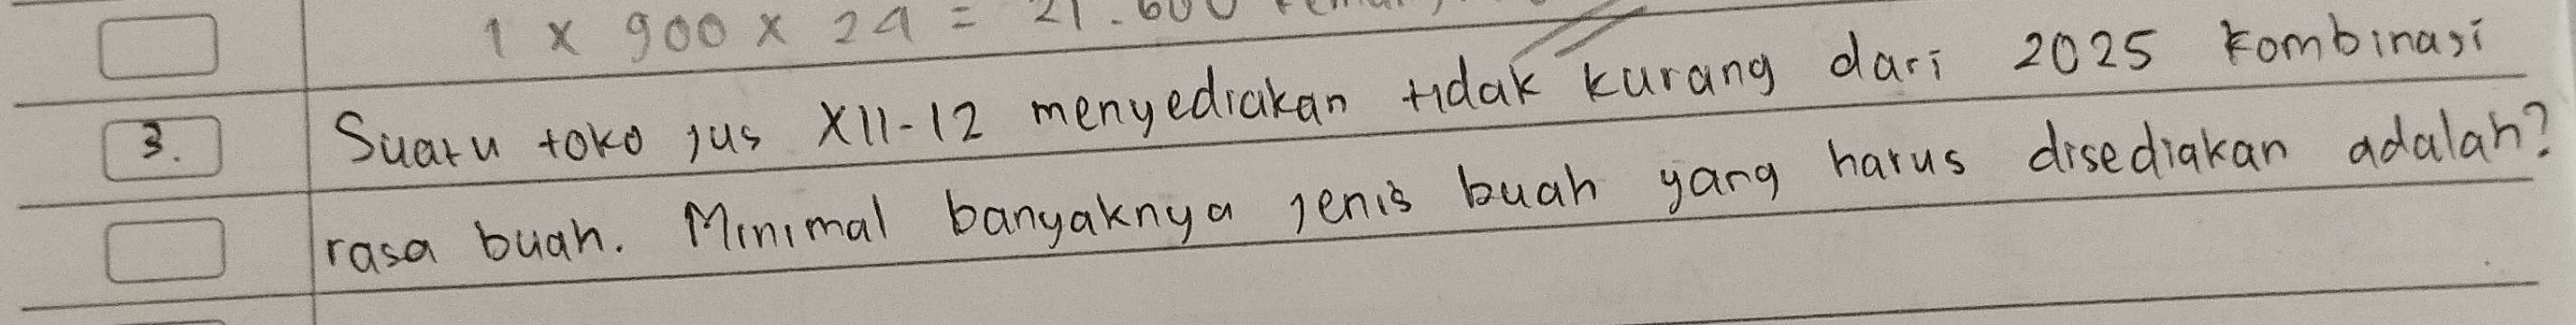 1 x 900 x 24 = 21.600
3. Suatu toko jus XII-12 menyediakan tidak kurang dari 2025 kombinasi
rasa buah. Minimal banyaknya jenis buah yang harus disediakan adalah?